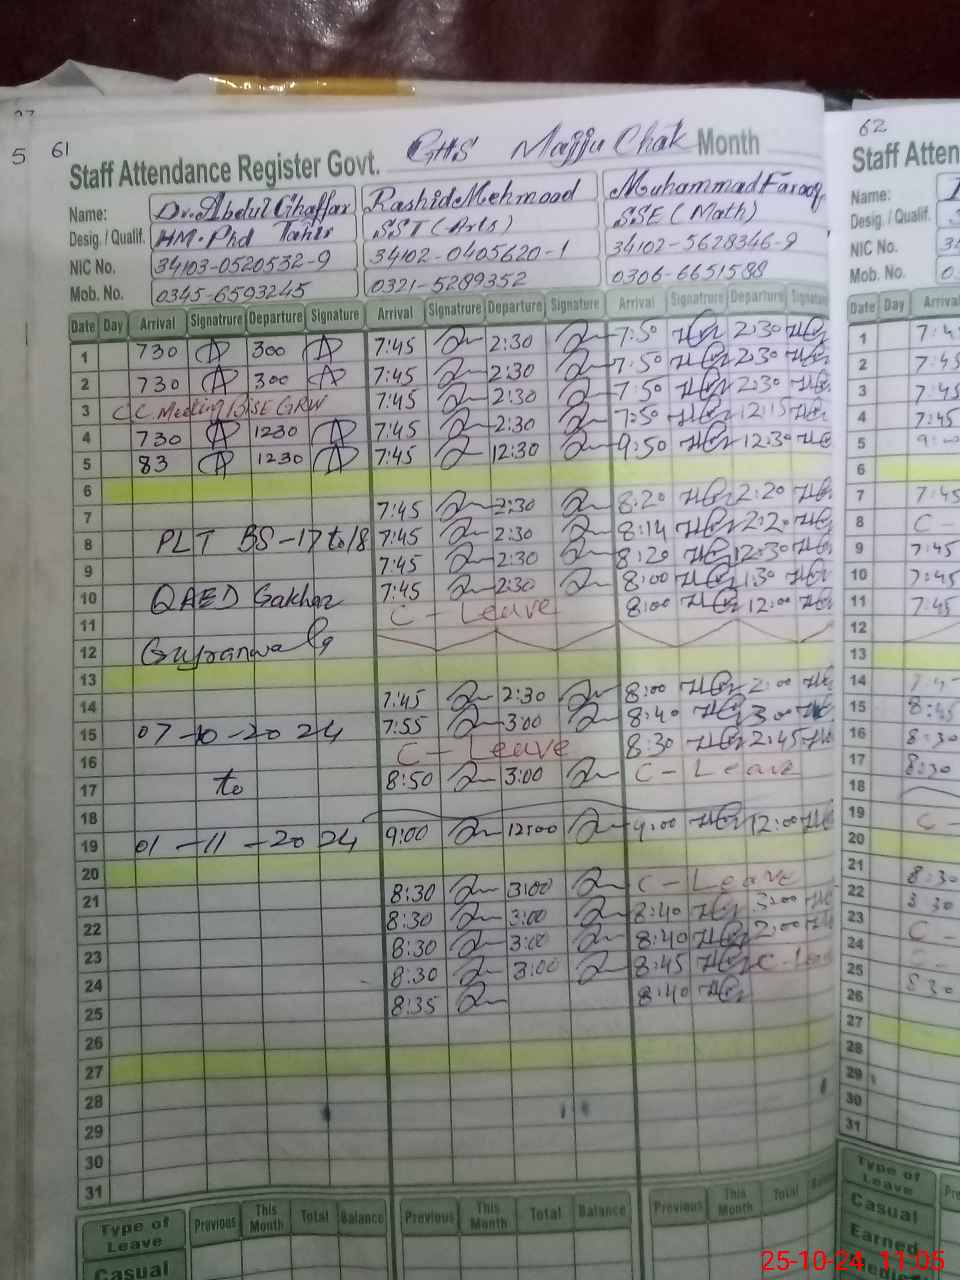 5 61
GHS Majju Chak
Staff Attendance Register Govt. Month
Name: Dr. Abdul Ghaffar Rashid Mehmood Muhammad Farooq
Desig. / Qualif. HM. Phd Tahir SST (Arts) SSE (Math)
NIC No. 34103-0520532-9 34102-0405620-1 34102-5628346-9
Mob. No. 0345-6593245 0321-5289352 0306-6651588
Date Day Arrival Signatrure Departure Signature Arrival Signatrure Departure Signature Arrival Signatrure Departure
1 730 300 7:45 2:30 7:50 2:30
2 730 300 7:45 2:30 7:50 2:30
3 C C Meeting BISE GRW 7:45 2:30 7:50 2:30
4 730 1230 7:45 2:30 7:50 12:15
5 83 1230 7:45 12:30 9:50 12:30
6
7 7:45 2:30 8:20 2:20
8 PLT BS-17 to 18 7:45 2:30 8:14 2:20
9 7:45 2:30 8:20 12:30
10 QAED Gakhar 7:45 2:30 8:00 1:30
11 C - Leave 8:00 12:00
12 Gujranwala
13
14 7:45 2:30 8:00 2:00
15 07-10-2024 7:55 3:00 8:40 3:00
16 C - Leave 8:30 2:45
17 to 8:50 3:00 C - Leave
18
19 01-11-2024 9:00 12:00 9:00 12:00
20
21 8:30 3:00 C - Leave
22 8:30 3:00 8:40 3:00
23 8:30 3:00 8:40 2:00
24 8:30 3:00 8:45 C-Lea
25 8:35 8:40
26
27
28
29
30
31
Type of Leave Previous This Month Total Balance Previous This Month Total Balance Previous This Month Total
Casual
62
Staff Atten
Name:
Desig. / Qualif.
NIC No.
Mob. No.
Date Day Arrival
1
2 7:45
3 7:45
4 7:45
5
6
7 7:45
8 C -
9 7:45
10 7:45
11 7:45
12
13
14
15 8:45
16 8:30
17 8:30
18
19 C -
20
21 8:30
22
23 C -
24
25 8 30
26
27
28
29
30
31
Type of Leave
Casual
Earned
25-10-24 11:05